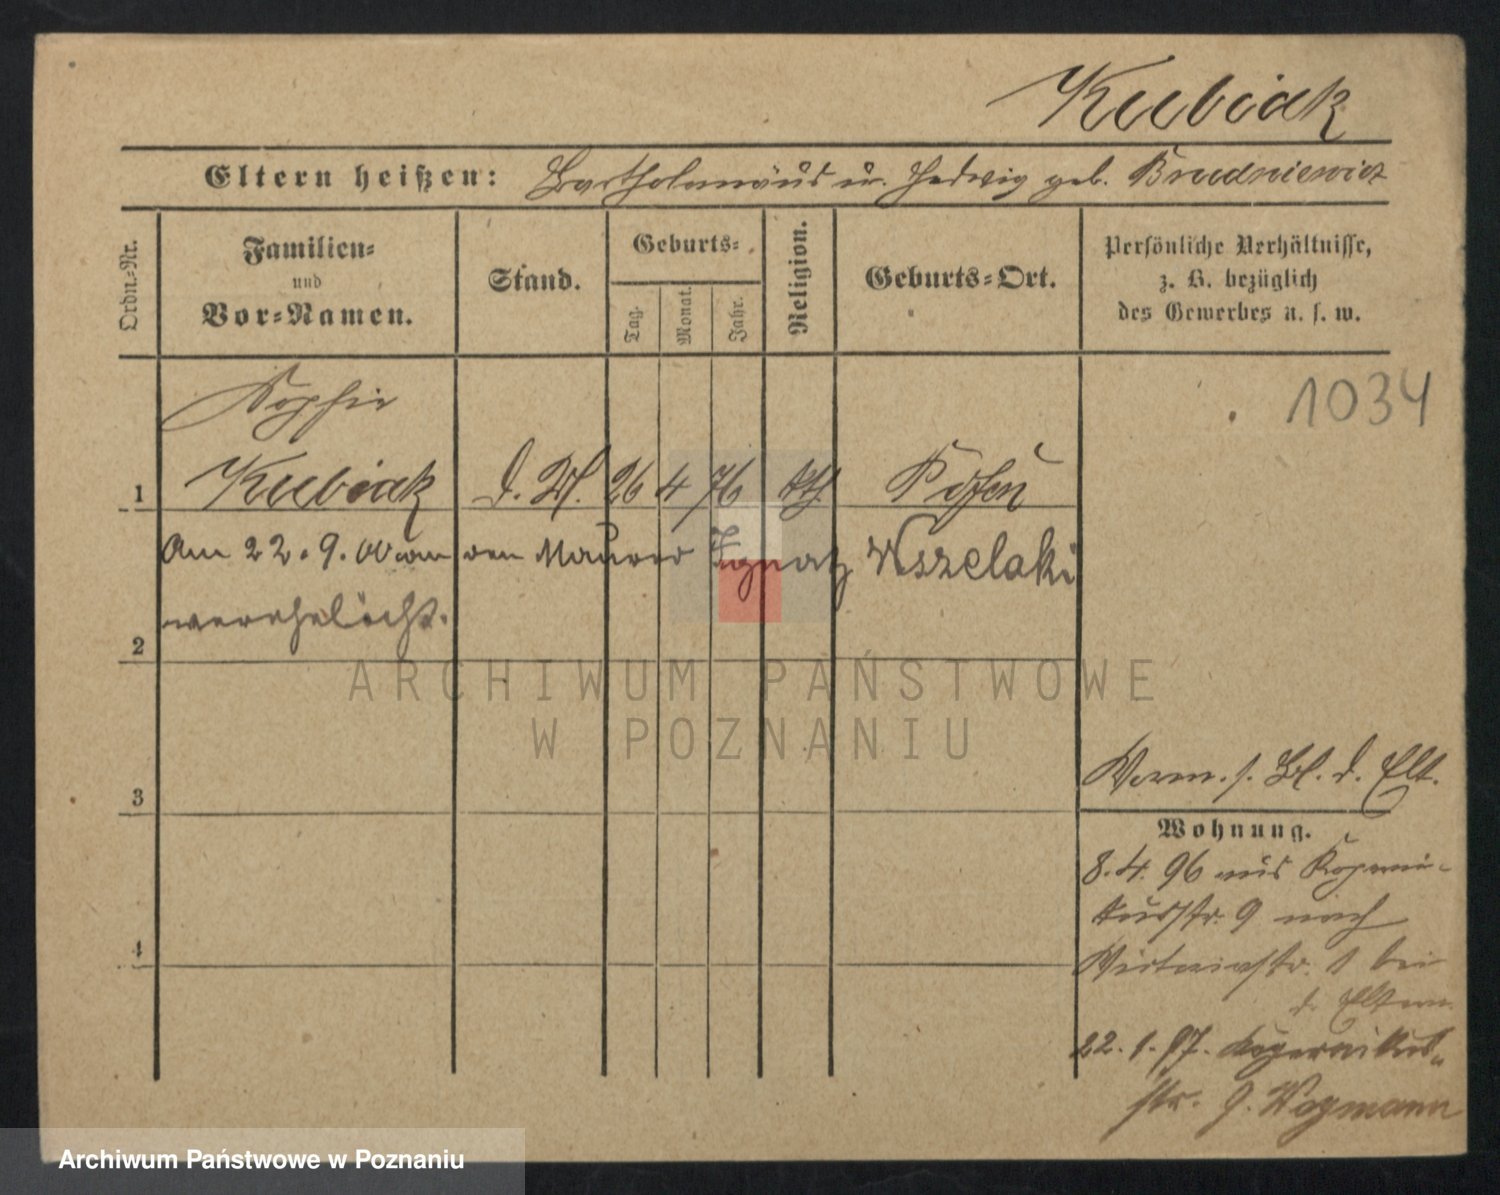 Kubiak
Eltern heißen: Bartholomäus u. Hedwig geb. Brudniewicz
Ordn.-Nr.
Familien-
und
Vor-Namen.
Stand.
Geburts-
Tag.
Monat.
Jahr.
Religion.
Geburts-Ort.
Persönliche Verhältnisse,
z. B. bezüglich
des Gewerbes u. s. w.
1034
Sophie
1 Kubiak 26 4 76 kth Posen
Am 22.9.00 an den Maurer Ignatz Wszelaki
verehelicht.
2
ARCHIWUM PAŃSTWOWE
W POZNANIU
3
4
Vorm. s. Bl. d. Elt.
Wohnung.
8.4.96 aus Koperni-
kusstr. 9 nach
1 bei
d. Eltern
22.1.97. Kopernikus-
str. 9. Wegmann
Archiwum Państwowe w Poznaniu